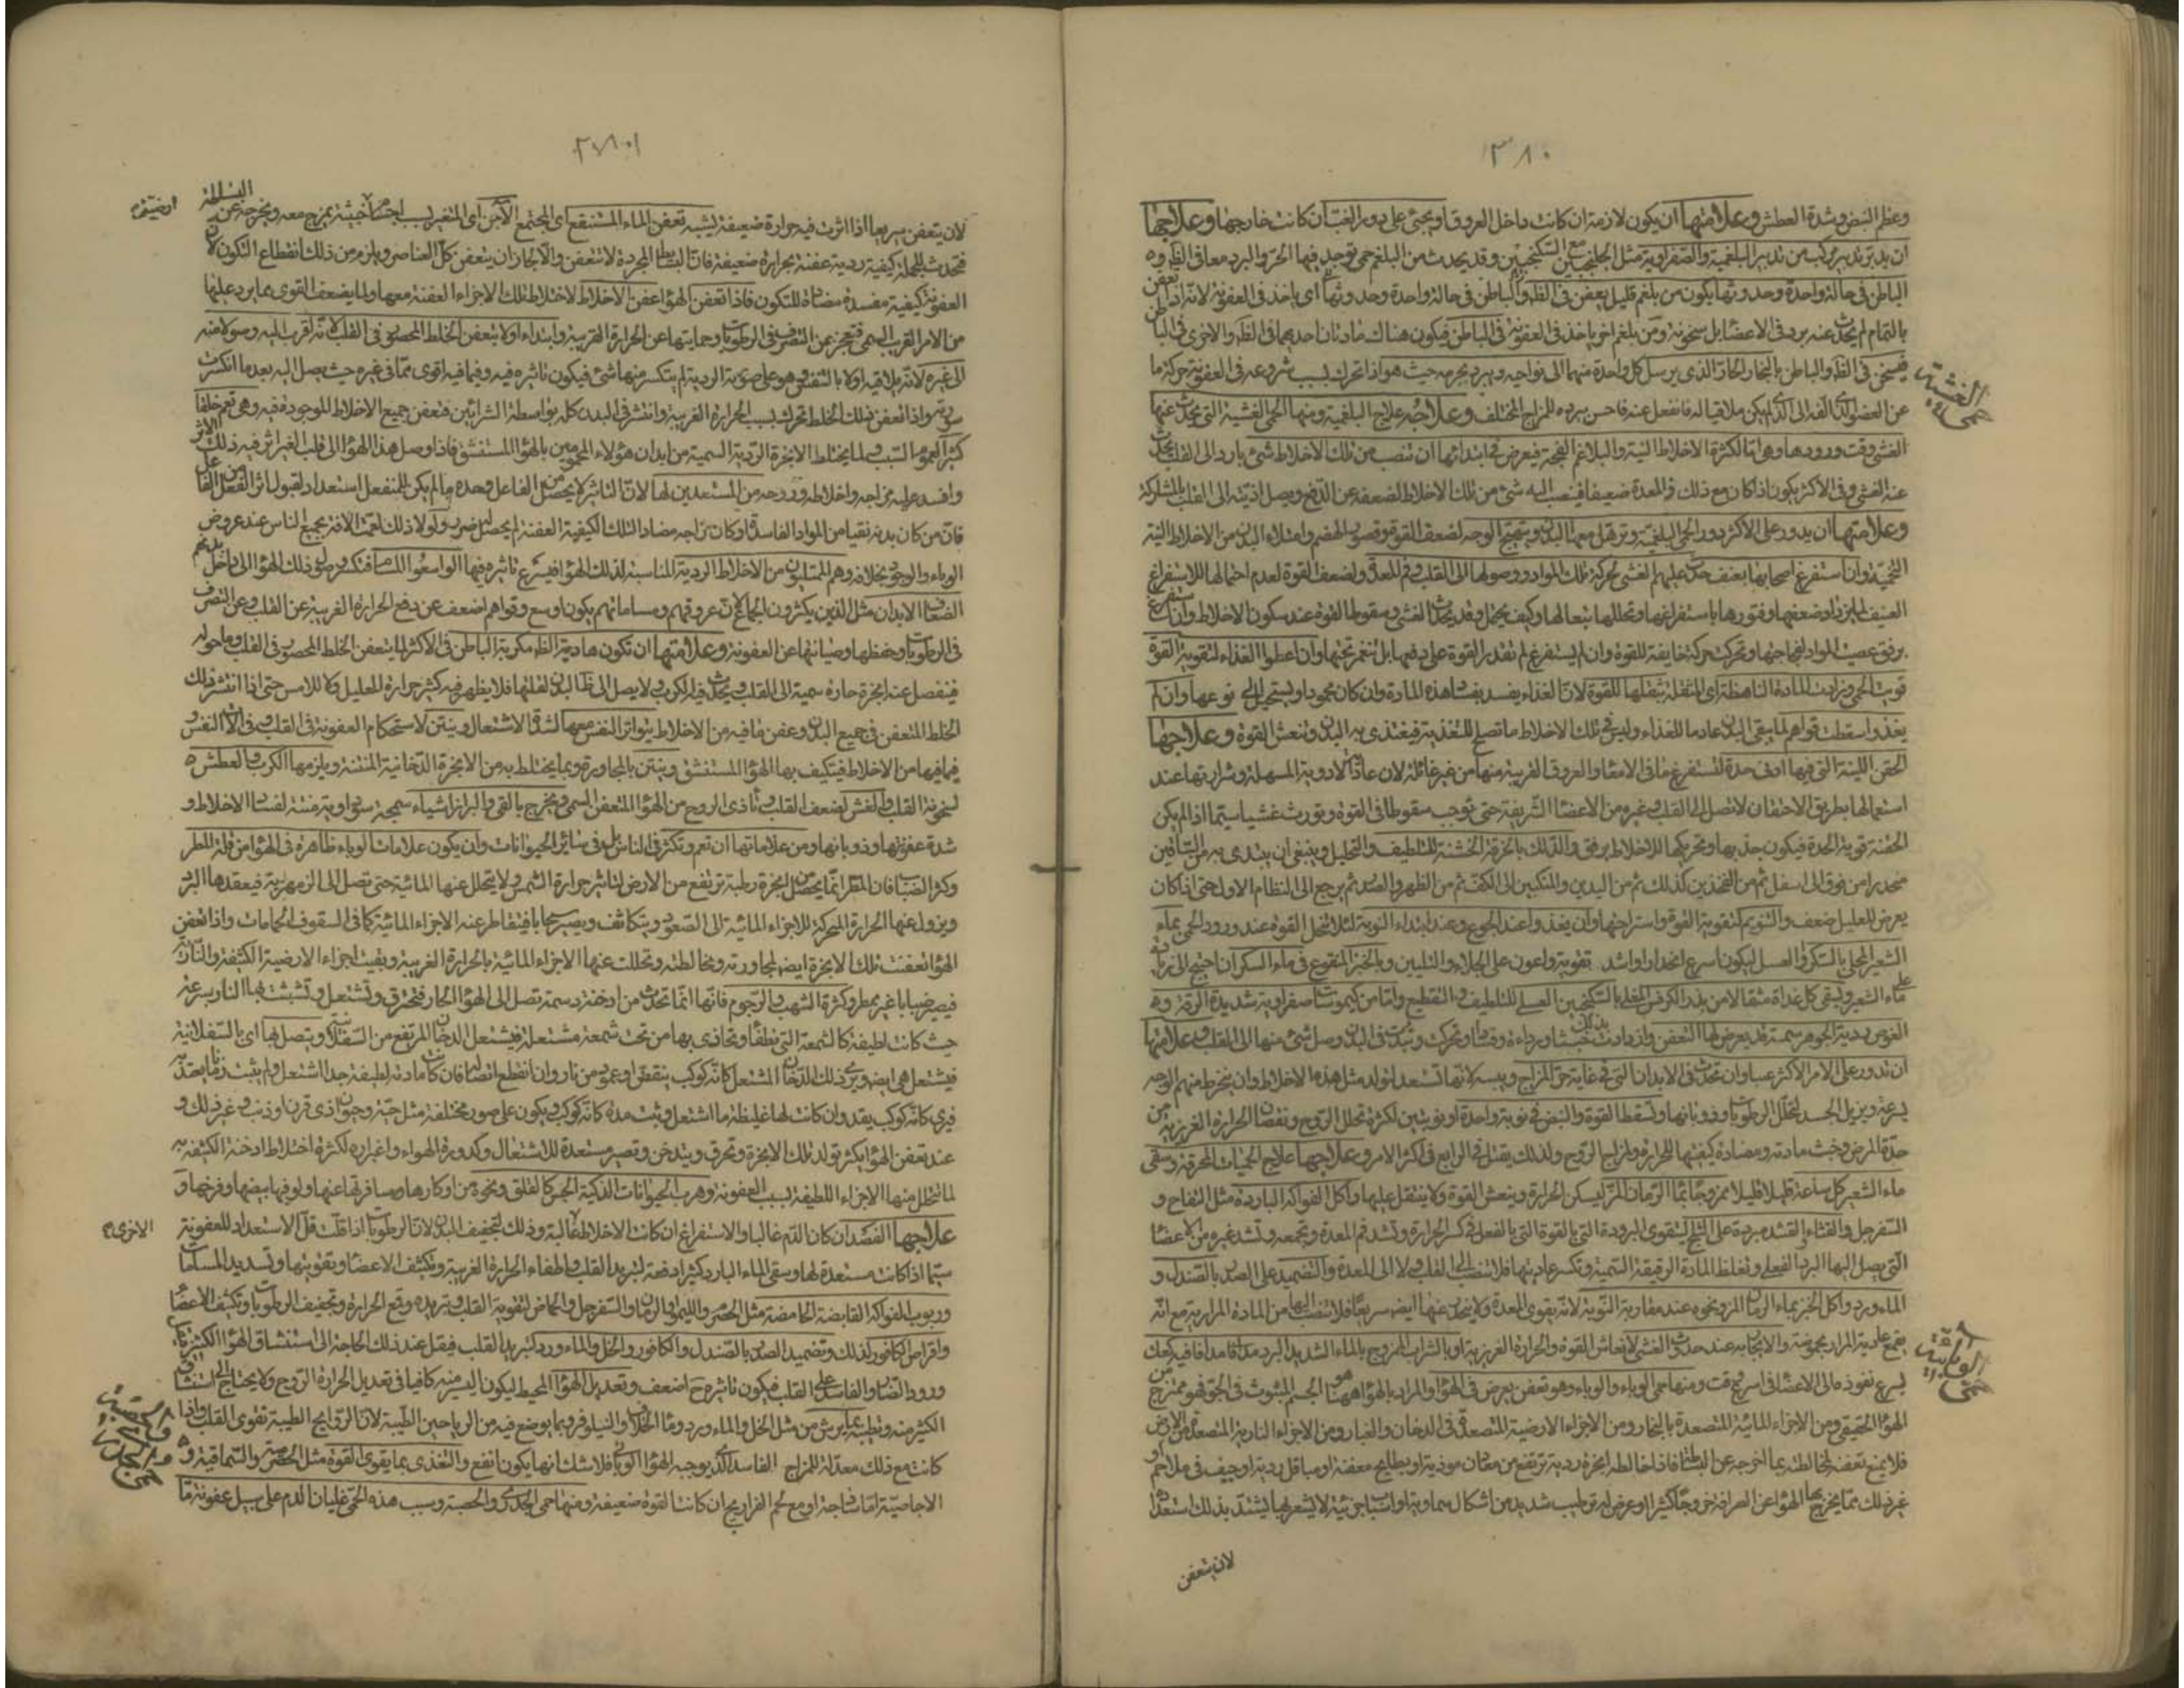 ٣٨٠
وعظم النبض وشدة العطش وعلامتها ان يكون لازمة ان كانت داخل العروق او يجئ على دور الغب ان كانت خارجها وعلاجها
ان يدبر تدبير مركب من تدبير البلغمية والصفراوية مثل الجلنجبين مع السكنجبين وقد يحدث من البلغم حمى توجد فيها الحر والبرد معا في الظهر و
الباطن في حالة واحدة وحدوثها يكون من بلغم قليل يعفن في الظهر والباطن في حالة واحدة وحدوثها اى ياخذ في العفونة لانه اذا تعفن
بالتمام لم يحدث عنه برد في الاعضا بل سخونة ومن بلغم اخر ياخذ في العفونة في الباطن فيكون هناك مادتان احديهما في الظهر والاخرى في الباطن
فيسخن في الظهر والباطن بالبخار الحار الذى يرسل كل واحدة منهما الى نواحيه ويبرد بجرمه حيث هو اذا تحرك بسبب شروعه في العفونة حركة ما
عن العضو الذى الفه الى الذى لم يكن ملاقيا له فانفعل عنه فاحس ببرده للمزاج المختلف وعلاجه علاج البلغمية ومنها الحمى الغشية التى يحدث عنها
حمى الغشية
الغشى وقت ورودها وهى اما لكثرة الاخلاط النية والبلاغم الفجة فيعرض في ابتدائها ان تنصب من تلك الاخلاط شئ بارد الى القلب يحدث
عنه الغشى وفى الاكثر يكون اذا كان مع ذلك فم المعدة ضعيفا فينصب اليه شئ من تلك الاخلاط لضعفه عن الدفع ويصل اذيته الى القلب بالمشاركة
وعلامتها ان يدور على الاكثر دور الحمى البلغمية وترهل معها البدن ويتهيج الوجه لضعف القوة وقصور الهضم وامتلاء البدن من الاخلاط النية
الفجة وان استفرغ اصحابها بعنف حدث عليهم الغشى لحركة تلك المواد ووصولها الى القلب وفم المعدة ولضعف القوة لعدم احتمالها للاستفراغ
العنيف لما يزداد ضعفها وفتورها باستفراغها وتحللها تبعا لها وكيف يحتمل وقد يحدث الغشى وسقوط القوة عند سكون الاخلاط وان استفرغ
برفق عصت المواد لفجاجتها وتحركت حركة خانقة للقوة وان لم يستفرغ لم تقدر القوة على دفعها بل تنغمر تحتها وان اعطوا الغذاء لتقوية القوة
قويت الحمى وزادت المادة الناهضة اى المثقلة بثقلها للقوة لان الغذاء يفسد بفساد هذه المادة وان كان محمودا ويستحيل الى نوعها وان لم
يغذوا سقطت قواهم لما يبقى البدن عادما للغذاء وليس في تلك الاخلاط ما تصلح للتغذية فيغتذى به البدن وتنعش القوة وعلاجها
الحقن اللينة التى فيها ادنى حدة لتستفرغ ما في الامعاء والعروق القريبة منها من غير غائلة لان عادة الادوية المسهلة وشرارتها عند
استعمالها بطريق الاحتقان لا تصل الى القلب وغيره من الاعضا الشريفة حتى توجب سقوطا في القوة وتورث غشيا سيما اذا لم يكن
الحقنة قوية الحدة فيكون جذبها وتحريكها للاخلاط برفق والدلك بالخرقة الخشنة للتلطيف والتحليل وينبغى ان يبتدى به من الساقين
منحدرا من فوق الى اسفل ثم من الفخذين كذلك ثم من اليدين والمنكبين الى الكف ثم من الظهر والصدر ثم يرجع الى النظام الاول حتى اذا كان
يعرض للعليل ضعف والتنويم لتقوية القوة واستراحتها وان يغذوا عند الجوع وعند ابتداء النوبة لئلا تنحل القوة عند ورود الحمى بماء
الشعير المحلى بالسكر والعسل ليكون اسرع انحدارا واشد تقوية واعون على الجلاء والتليين وبالخبز المنقوع في ماء السكر ان احتيج الى زيادة
على ماء الشعير ويسقى كل غداة مثقالا من بذر الكرفس المغلى بالسكنجبين العسلى للتلطيف والتقطيع واما من كيموسات صفراوية شديدة الرقة و
الغوص ردية الجوهر سمية قد يعرض لها التعفن وازدادت خبثا ورداءة وفسادا وتحركت ونبت في البدن وصل شئ منها الى القلب وعلامتها
ان تدور على الامر الاكثر غبا وان تحدث في الابدان التى في غاية حر المزاج ويبسه لانها تستعد لتولد مثل هذه الاخلاط وان ينخرط منهم الوجه
بسرعة ويزبل الجسد لتحلل الرطوبات وذوبانها وتسقط القوة والنبض في نوبة واحدة او نوبتين لكثرة تحلل الروح ونقصان الحرارة الغريزية من
حدة المرض وخبث مادته ومضادة كيفيتها للحرارة ولمزاج الروح ولذلك يقتل في الرابع في اكثر الامر وعلاجها علاج الحميات المحرقة وسقى
ماء الشعير كل ساعة قليلا قليلا ممزوجا بماء الرمان المز ليسكن الحرارة وينعش القوة ولا يتثقل عليها واكل الفواكه الباردة مثل التفاح و
السفرجل والقثاء والقثد مبردة على الثلج لتتقوى البرودة التى بالقوة التى بالفعل في كسر الحرارة وتشد فم المعدة وتجمعه وتشد غيره من الاعضا
التى يصل اليها البرد الفعلى وتغلظ المادة الرقيقة السمية وتكسر عاديتها فلا تنصب الى القلب ولا الى المعدة والتضميد على الصدر بالصندل و
الماء ورد واكل الخبز بماء الرمان المز ونحوه عند مقاربة النوبة لانه يقوى المعدة ولا ينحدر عنها ايضا سريعا فلا تنصب اليها من المادة المرارية مع انه
يقمع عادية المرار بحموضته والايجار به عند حدوث الغشى لانعاش القوة والحرارة الغريزية او بالشراب الممزوج بالماء الشديد البرد مدافا فيه كعك
حمى الوبائية
يسرع نفوذه الى الاعضا في اسرع وقت ومنها حمى الوباء والوباء وهو تعفن يعرض في الهوا والمراد بالهوا ههنا هو الجسم المبثوث في الجو فهو ممتزج من
الهوا الحقيقى ومن الاجزاء المائية المتصعدة بالبخار ومن الاجزاء الارضية المتصعدة في الدخان والغبار ومن الاجزاء النارية المتصعدة من الارض
فلا يمنع تعفنه لمخالطته بما اخرجه عن البساطة فاذا خالطه ابخرة ردية ترتفع من معادن موذية او بطايح معفنة او مباقل ردية او جيف في ملاحم او
غير ذلك مما يخرج بها الهوا عن الصرافة خروجا كثيرا او عرض له ترطيب شديد من اشكال سماوية او اسباب جزئية لا يشعر بها يشتد بذلك استعداده
لان يتعفن

لان يتعفن سريعا اذا اثرت فيه حرارة ضعيفة يشبه تعفن الماء المستنقع اى المجتمع الآجن اى المتغير بسبب اجسام ارضية خبيثة يمزج معه ويخرجه عن البساطة
فتحدث للجملة كيفية ردية عفنة بحرارة ضعيفة فان البسائط المجردة لا تتعفن والا لجاز ان يتعفن كل العناصر ويلزم من ذلك انقطاع التكون لان
العفونة كيفية مفسدة مضادة للتكون فاذا تعفن الهوا عفن الاخلاط لاختلاط تلك الاجزاء العفنة معها ولما يضعف القوى بما يرد عليها
من الامر الغريب السمى فتعجز عن التصرف في الرطوبات وحمايتها عن الحرارة الغريبة وابتداء اولا يعفن الخلط المحصور في القلب لانه اقرب اليه وصولا منه
الى غيره لانه يلاقيه اولا بالتنفس وهو على صورته الردية لم ينكسر منها شئ فيكون تاثيره فيه وفيما فيه اقوى مما في غيره حيث يصل اليه بعد ما انكسرت
سورته واذا تعفن ذلك الخلط تحرك بسبب الحرارة الغريبة وانتشر في البدن كله بواسطة الشرائين فتعفن جميع الاخلاط الموجودة فيه وهى تعم خلقا
كثيرا لعموم السبب ولما يختلط الابخرة الردية السمية من ابدان هؤلاء المحمومين بالهوا المستنشق فاذا وصل هذا الهوا الى قلب الغير اثر فيه ذلك الاثر
وافسد عليه مزاجه واخلاطه وروحه من المستعدين لها لان التاثير لا يحصل من الفاعل وحده ما لم يكن للمنفعل استعداد لقبول اثر الفعل من الفاعل
فان من كان بدنه نقيا من المواد الفاسدة او كان مزاجه مضادا لتلك الكيفية العفنة لم يحصل له ضرر ولولا ذلك لعمت الافة بجميع الناس عند عروض
الوباء والوجود بخلافه وهم الممتلئون من الاخلاط الردية المناسبة لذلك الهوا فيسرع تاثيره فيها الواسعوا المسام فتكثر وصول ذلك الهوا الى داخل بدنهم
الضعاف الابدان مثل الذين يكثرون الجماع لان عروقهم ومساماتهم يكون اوسع وقواهم اضعف عن دفع الحرارة الغريبة عن القلب وعن التصرف
في الرطوبات وحفظها وصيانتها عن العفونة وعلامتها ان تكون هادية الظهر مكربة الباطن في الاكثر لما يتعفن الخلط المحصور في القلب وما حوله
فينفصل عنه ابخرة حارة سمية الى القلب ويحدث فيه الكرب ولا يصل الى ظاهر البدن لقلتها فلا يظهر فيه كثير حرارة للعليل ولا للامس حتى اذا انتشر ذلك
الخلط المتعفن في جميع البدن وعفن ما فيه من الاخلاط يتواتر النفس معها لشدة الاشتعال وينتن لاستحكام العفونة في القلب وفى آلات النفس و
فيما فيها من الاخلاط فيتكيف بها الهوا المستنشق وينتن بالمجاورة وبما يختلط به من الابخرة الدخانية المنتنة ويلزمها الكرب والعطش
لسخونة القلب والغشى لضعف القلب وتاذى الروح من الهوا المتعفن السمى ويخرج بالقئ والبراز اشياء سمجة سوداوية منتنة لفساد الاخلاط و
شدة عفونتها وذوبانها ومن علاماتها ان تعم وتكثر في الناس بل في سائر الحيوانات وان يكون علامات الوباء ظاهرة في الهوا من قلة المطر
وكثرة الضباب فان المطر انما يحصل من ابخرة رطبة ترتفع من الارض لتاثير حرارة الشمس ولا يتحلل عنها المائية حتى تصل الى الزمهرير فيعقدها البرد
ويزول عنها الحرارة المحركة للاجزاء المائية الى الصعود ويتكاثف ويصير سحابا فيتقاطر عنه الاجزاء المائية كما في السقوف الحمامات واذا تعفن
الهوا تعفنت تلك الابخرة ايضا لمجاورته ومخالطته وتحللت عنها الاجزاء المائية بالحرارة الغريبة وبقيت اجزاءا الارضية الكثيفة والنارية
فيصير ضبابا غير ممطر وكثرة الشهب والرجوم فانها انما تحدث من ادخنة دسمة تصل الى الهوا الحار فتحترق وتشتعل وتشبث بها النار بسرعة
حيث كانت لطيفة كالشمعة التى تطفأ وتحاذى بها من تحت شمعة مشتعلة فيشتعل الدخان المرتفع من السفلانية ويتصل بها اى بالسفلانية
فيشتعل هى ايضا ويرى ذلك الدخان المشتعل كانه كوكب ينقض او عمود من نار وان انقطع اتصاله فان كانت مادته لطيفة جدا اشتعل ولم يثبت زمانا يعتد به
فيرى كانه كوكب يقد وان كانت لها غليظة ما اشتعل وثبت مدة كانه كوكب ويكون على صور مختلفة مثل حية وحيوان ذى قرن او ذنب وغير ذلك و
عند تعفن الهوا يكثر تولد تلك الابخرة وتحرق ويتدخن وتصير مستعدة للاشتعال وكدورة الهواء واغبراره لكثرة اختلاط ادخنة الكثيفة به
لما تحلل منها الاجزاء اللطيفة بسبب العفونة وهرب الحيوانات الذكية الجس كاللقلق ونحوه من اوكارها ومسافرتها عنها ولو فيها بيضها وفرخها و
علاجها الفصد ان كان الدم غالبا والاستفراغ ان كانت الاخلاط الاخرى غالبة وذلك لتجفيف البدن لان الرطوبات اذا قلت قل الاستعداد للعفونة
سيما اذا كانت مستعدة لها وسقى الماء البارد كثيرا دفعة لتبريد القلب واطفاء الحرارة الغريبة وتكثيف الاعضا وتقويتها وتسديد المسامات
وربوب الفواكه القابضة الحامضة مثل الحصرم والليمو والرمان والسفرجل والحماض لتقوية القلب وتبريده وقمع الحرارة وتجفيف الرطوبات وتكثيف الاعضا
واقراص الكافور لذلك وتضميد الصدر بالصندل والكافور والخل والماء ورد لتبريد القلب فيقل عند ذلك الحاجة الى استنشاق الهوا الكثير
ورود الضار والفاسد على القلب فيكون تاثيره ح اضعف وتعديل الهوا المحيط ليكون اليسير منه كافيا في تعديل الحرارة الروح ولا يحتاج الى استنشاق
الكثير منه وتطييبه بما يرش من مثل الخل والماء ورد وماء الخلاف والنيلوفر وبما يوضع فيه من الرياحين الطيبة لان الروايح الطيبة تقوى القلب واذا
كانت مع ذلك معدلة للمزاج الفاسد الذى يوجبه الهوا الوبائى فلا شك انها يكون انفع والتغذى بما يقوى القوة مثل الحصرمية والسماقية و
حمى الجدرى والحصبة
الاجاصية اما ساذجة او مع لحم الفراريج ان كانت القوة ضعيفة ومنها حمى الجدرى والحصبة وسبب هذه الحمى غليان الدم على سبيل عفونة ما